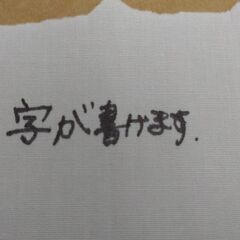 字が書けます.